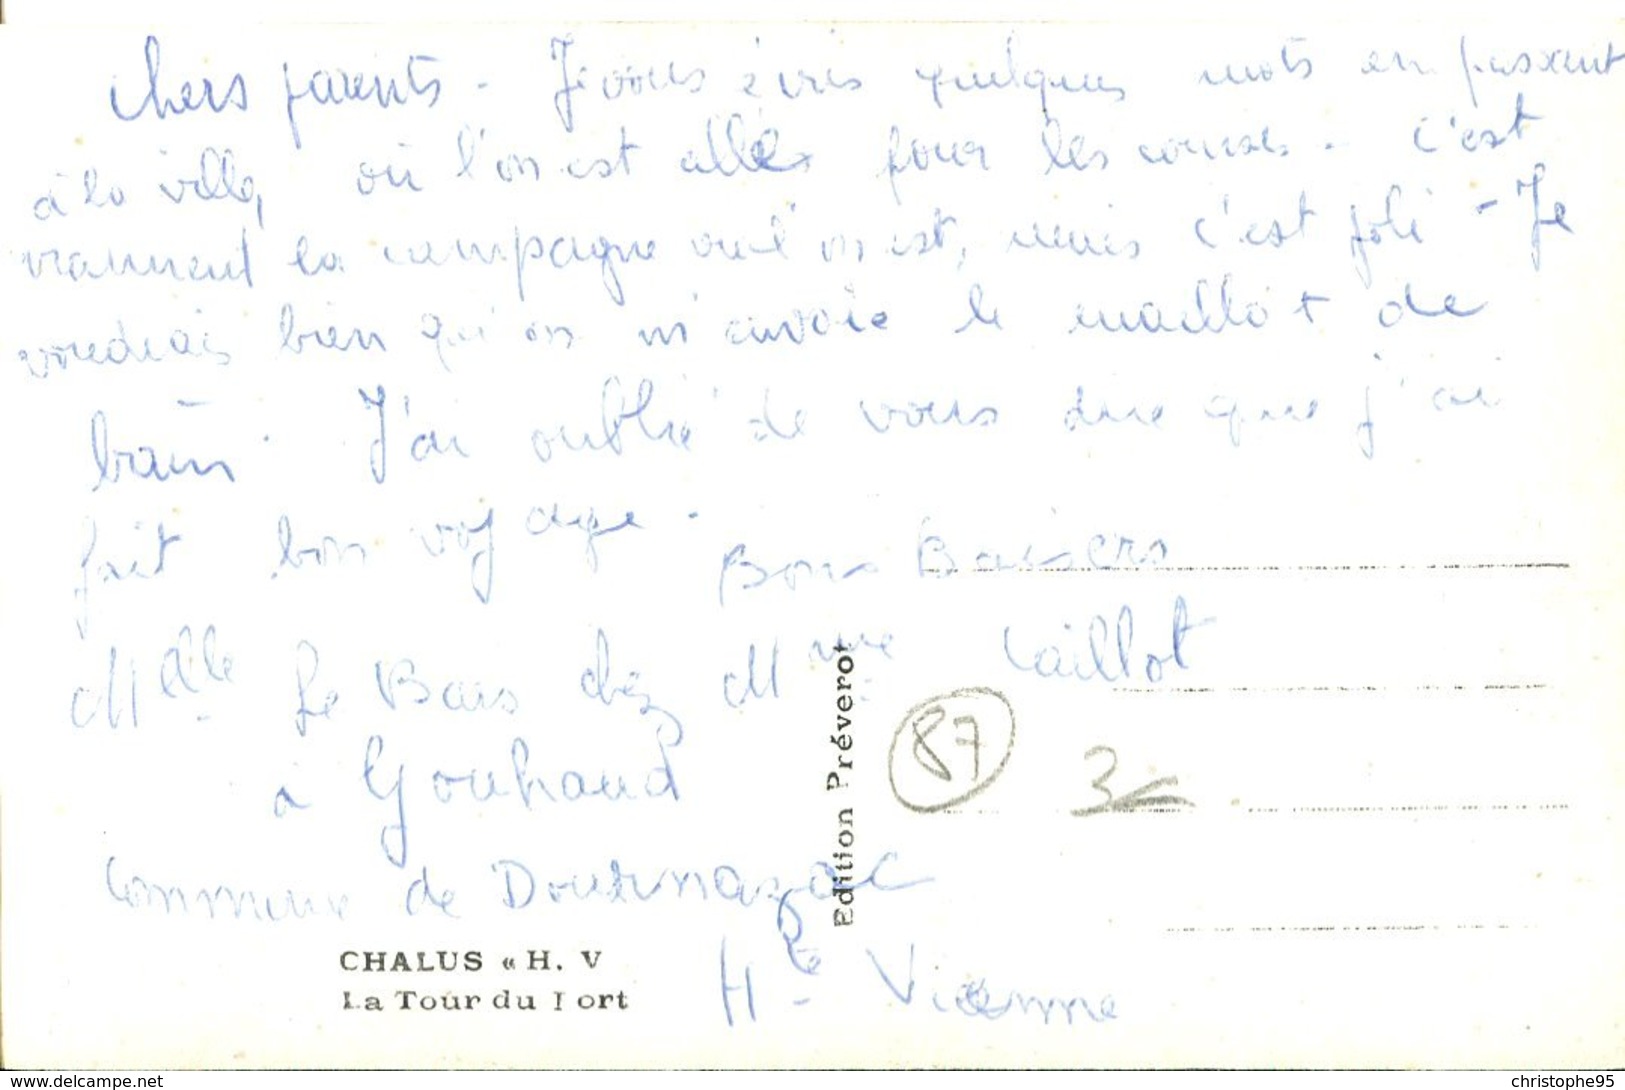 Chers parents - Je vous écris quelques mots en passant
à la ville, où l'on est allés pour les courses - C'est
vraiment la campagne où l'on est, mais c'est joli - Je
voudrais bien qu'on m'envoie le maillot de
bain. J'ai oublié de vous dire que j'ai
fait bon voyage.
Bons Baisers
Mlle Le Bars chez Mme Caillot
à Gouhaud
Commune de Dournazac
Hte Vienne
Edition Préverot
87
3
CHALUS « H. V
La Tour du Fort
www.delcampe.net
christophe95